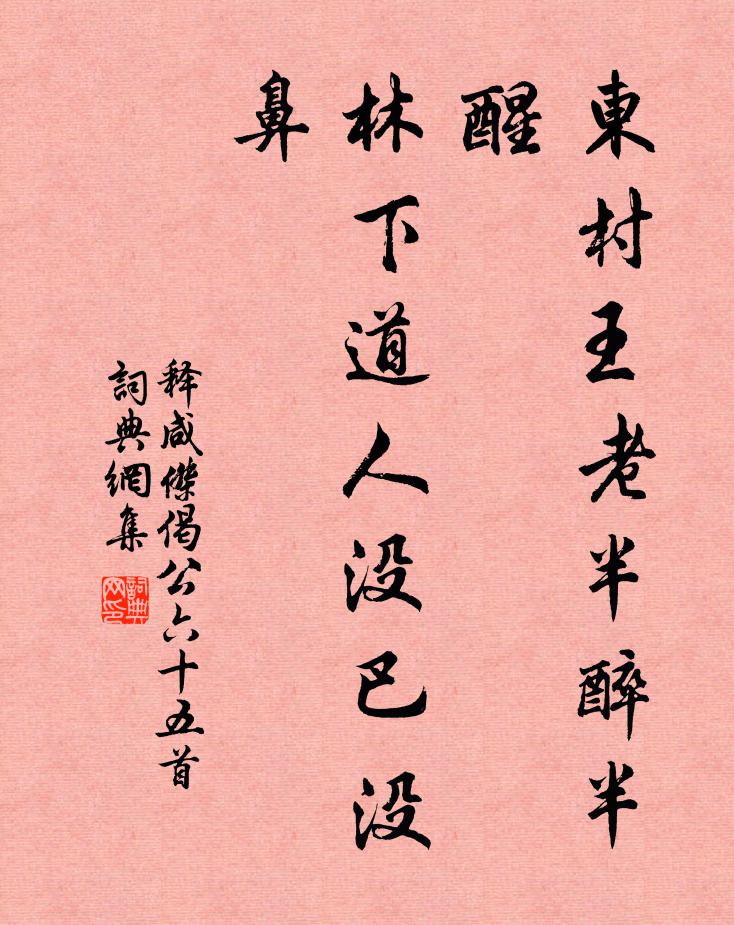 東村王老半醉半
醒
林下道人没巴没
鼻
释咸傑偈公六十五首
詞典網集
詞典網印